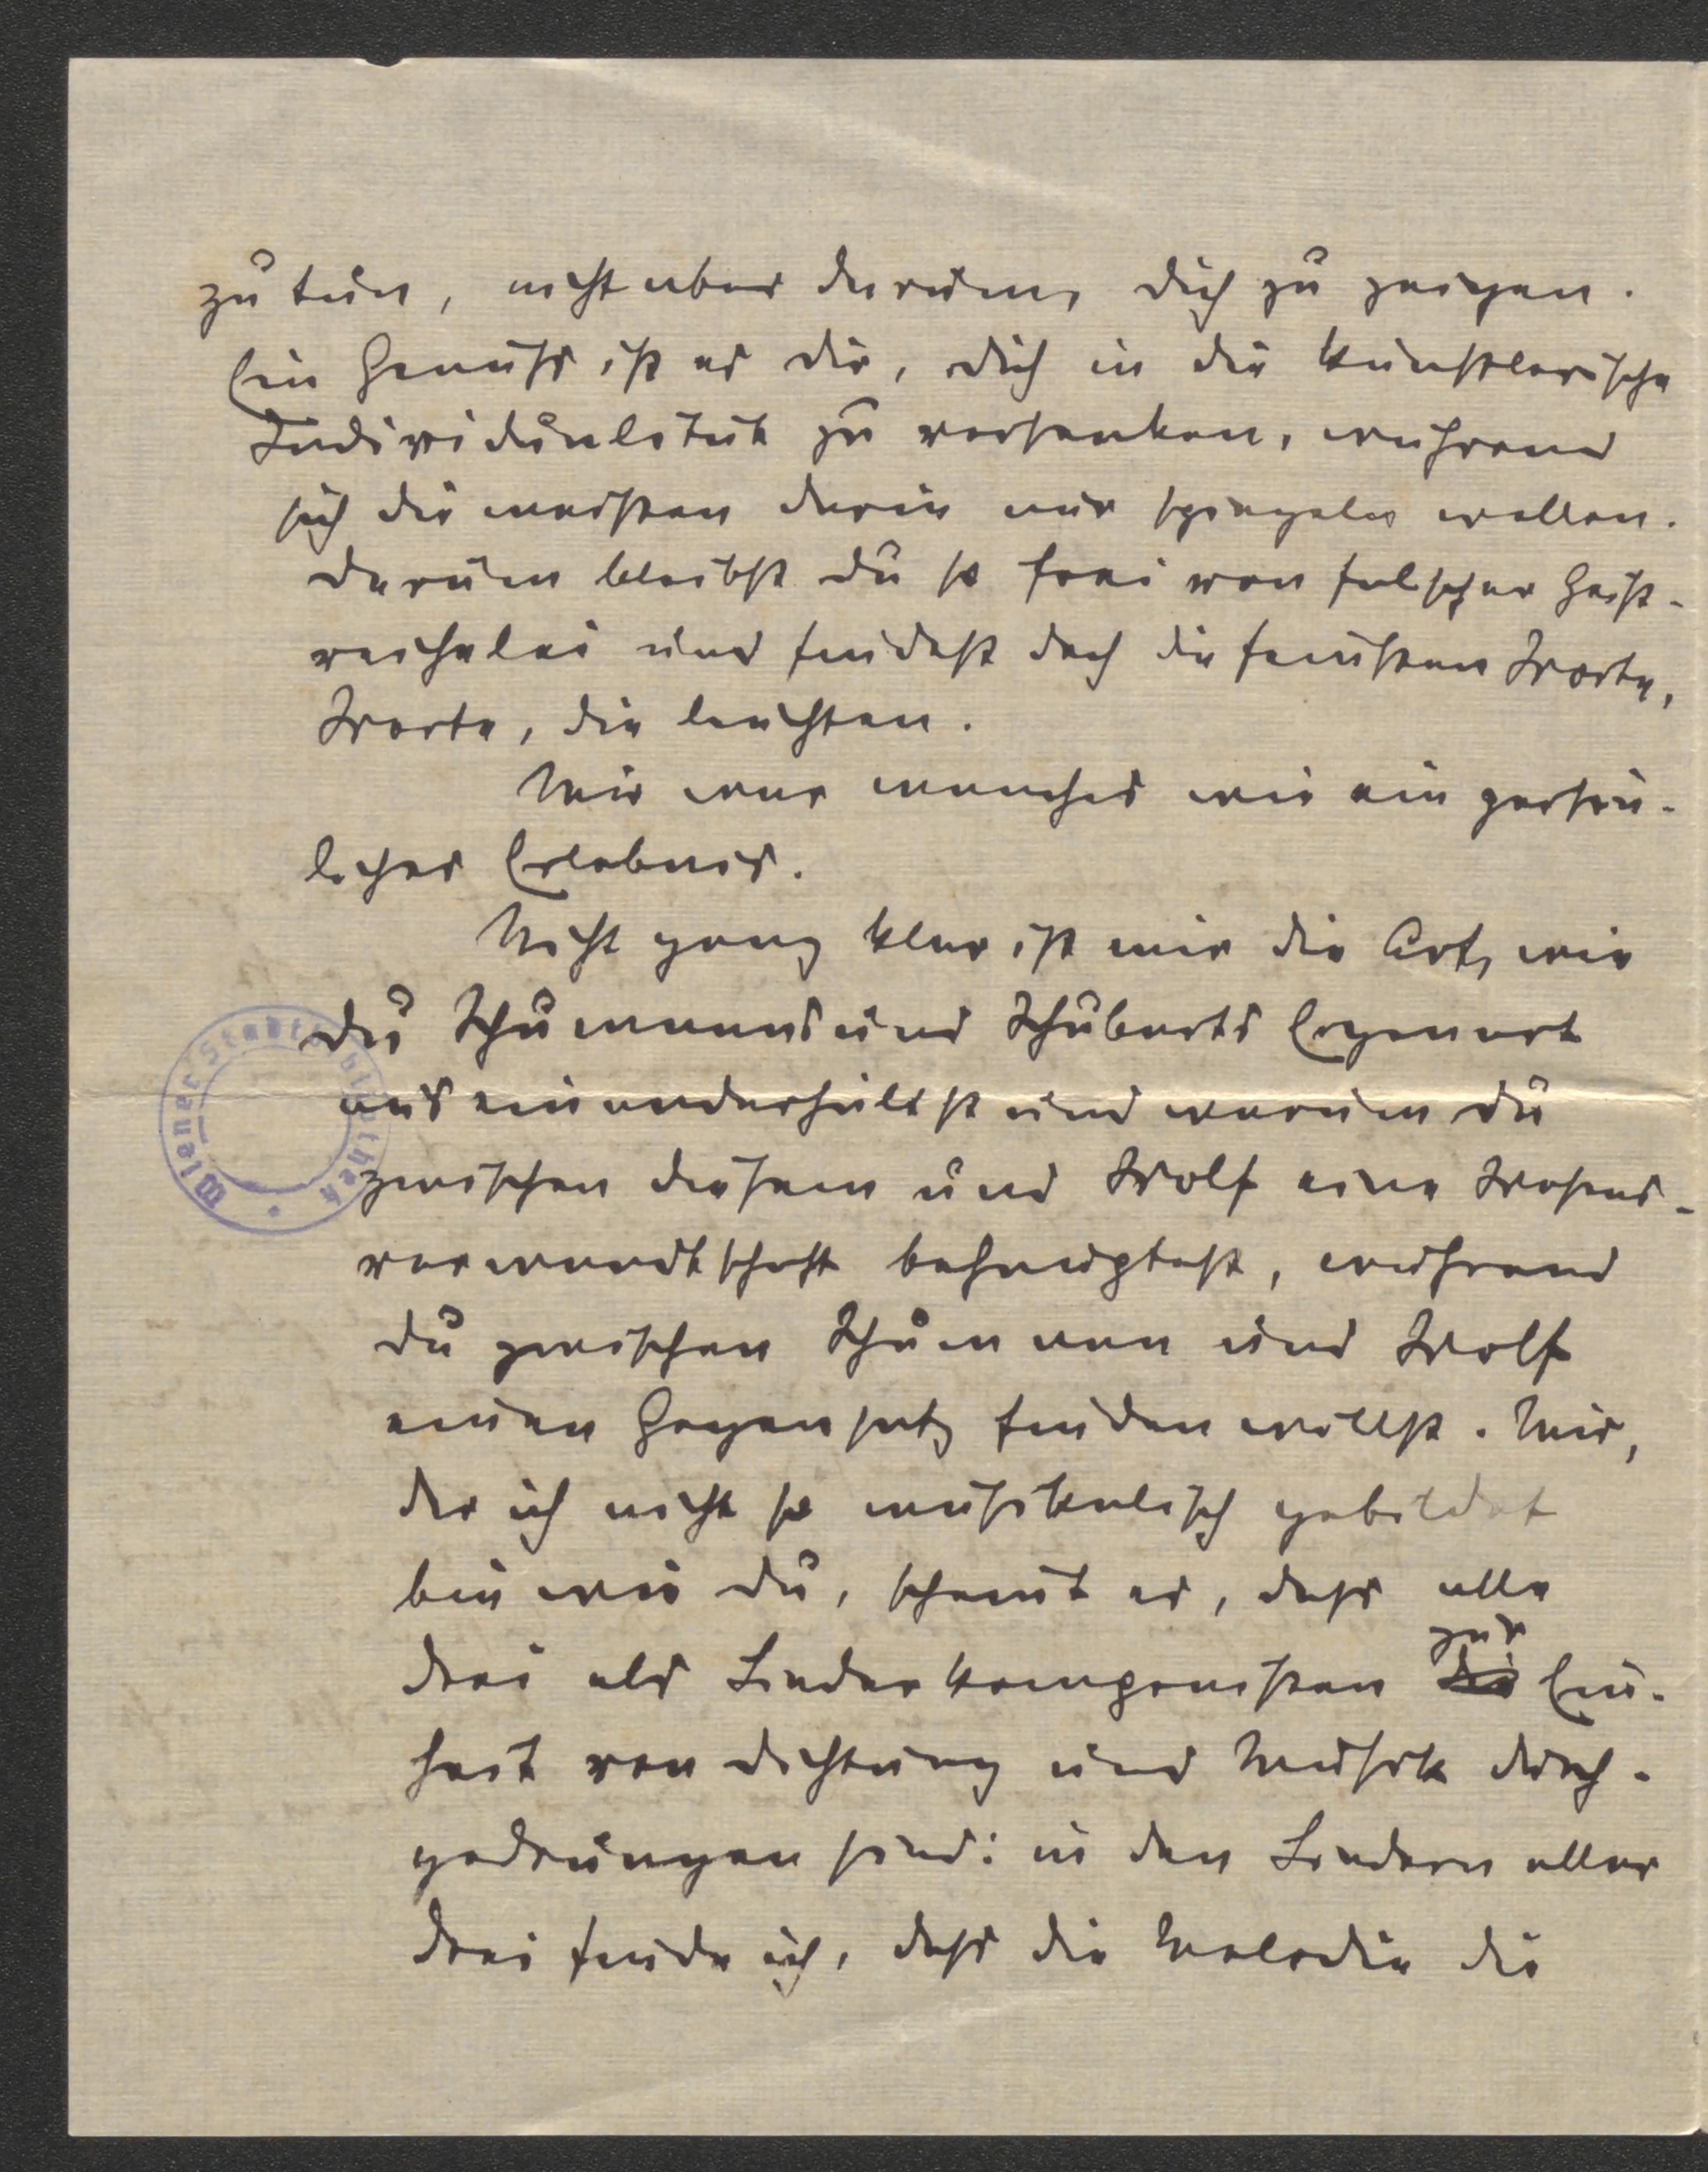 zu tun, nicht aber darum, dich zu zeigen.
Ein Genuss ist es dir, dich in die künstlerische
Individualität zu versenken, während
sich die meisten darin nur spiegeln wollen.
Darum bleibst du so frei von falscher Geist-
reichelei und findest doch die feinsten Worte,
Worte, die leuchten.
Mir war manches wie ein persön-
liches Erlebnis.
Nicht ganz klar ist mir die Art, wie
du Schumanns und Schuberts Eigenart
auseinanderhältst und warum du
zwischen diesem und Wolf eine Wesens-
verwandtschaft behauptest, während
du zwischen Schumann und Wolf
einen Gegensatz finden willst. Mir,
der ich nicht so musikalisch gebildet
bin wie du, scheint es, dass alle
drei als Liederkomponisten zur Ein-
heit von Dichtung und Musik durch-
gedrungen sind: in den Liedern aller
drei finde ich, dass die Melodie die
Wiener Stadtbibliothek